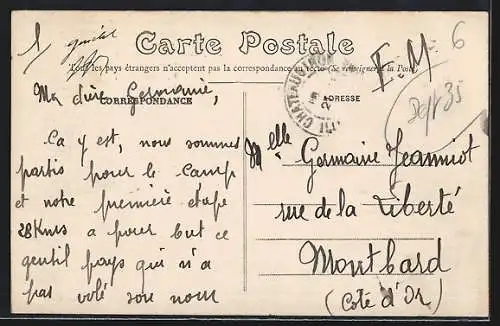 6
Carte Postale
Tous les pays étrangers n'acceptent pas la correspondance au recto (Se renseigner à la Poste)
F. M.
CORRESPONDANCE
ADRESSE
Dept 35
Ma chère Germaine,
Ca y est, nous sommes
partis pour le camp
et notre première étape
28Kms a pour but ce
gentil pays qui n'a
pas volé son nom
Melle Germaine Jeanniot
rue de la Liberté
Montbard
(Côte d'Or)